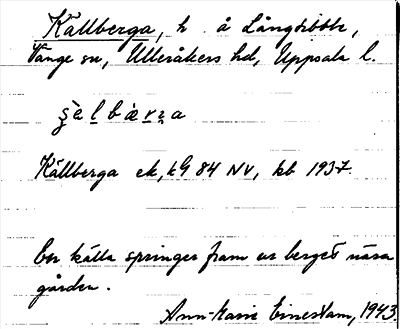 Källberga, h. å Långtibble,
Vänge sn, Ulleråkers hd, Uppsala l.
Källberga ek, kG 84 NV, kb 1937.
En källa springer fram ur berget nära
gården.
Ann-Marie Einestam, 1943.